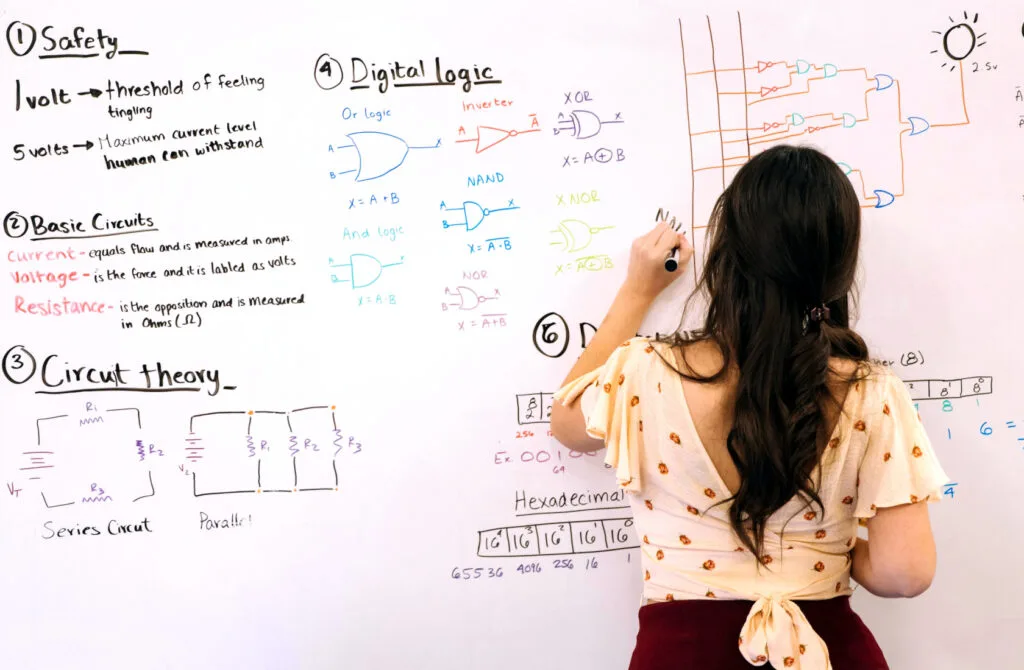 ① Safety
1 volt → threshold of feeling
tingling
5 volts → Maximum current level
human can withstand
② Basic Circuits
Current - equals flow and is measured in amps.
Voltage - is the force and it is labled as volts
Resistance - is the opposition and is measured
in Ohms (Ω)
③ Circut theory
R1
R2
R3
VT
Series Circut
V2
R1
R2
R3
Parallel
④ Digital logic
Or logic
A
B
X
X = A + B
And logic
A
B
X
X = A·B
Inverter
A
A̅
NAND
A
B
X
X = A̅·̅B̅
NOR
A
B
X
X = A̅+̅B̅
XOR
A
B
X
X = A ⊕ B
X NOR
X = A̅ ⊕̅ B
2.5v
NA
⑤ D
(8)
8¹ 8⁰
8 1
1 6 =
4
256
Ex. 001
64
Hexadecimal
16⁴ 16³ 16² 16¹ 16⁰
65536 4096 256 16 1